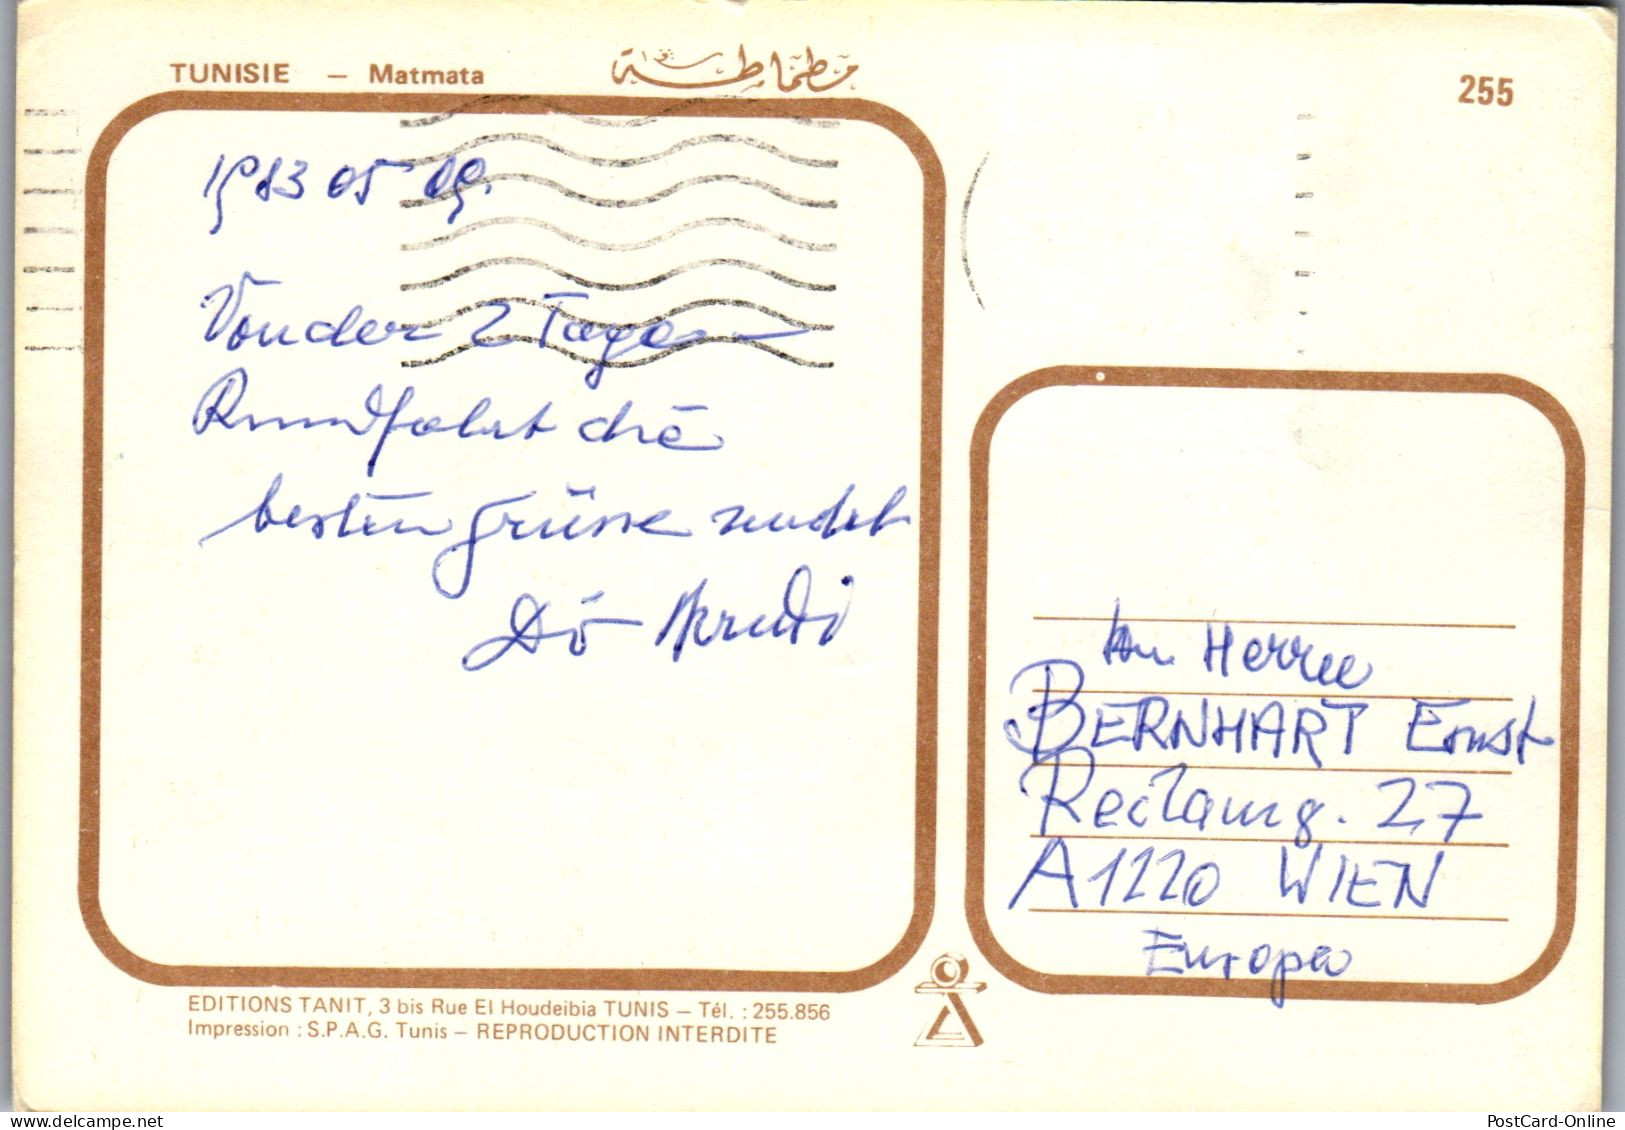 TUNISIE – Matmata مطماطة
255
1983 05 09.
Von der 2 Tage –
Rundfahrt die
besten Grüsse sendet
An Herrn
BERNHART Ernst
Reclamg. 27
A 1220 WIEN
Europa
EDITIONS TANIT, 3 bis Rue El Houdeibia TUNIS – Tél. : 255.856
Impression : S.P.A.G. Tunis – REPRODUCTION INTERDITE
PostCard-Online